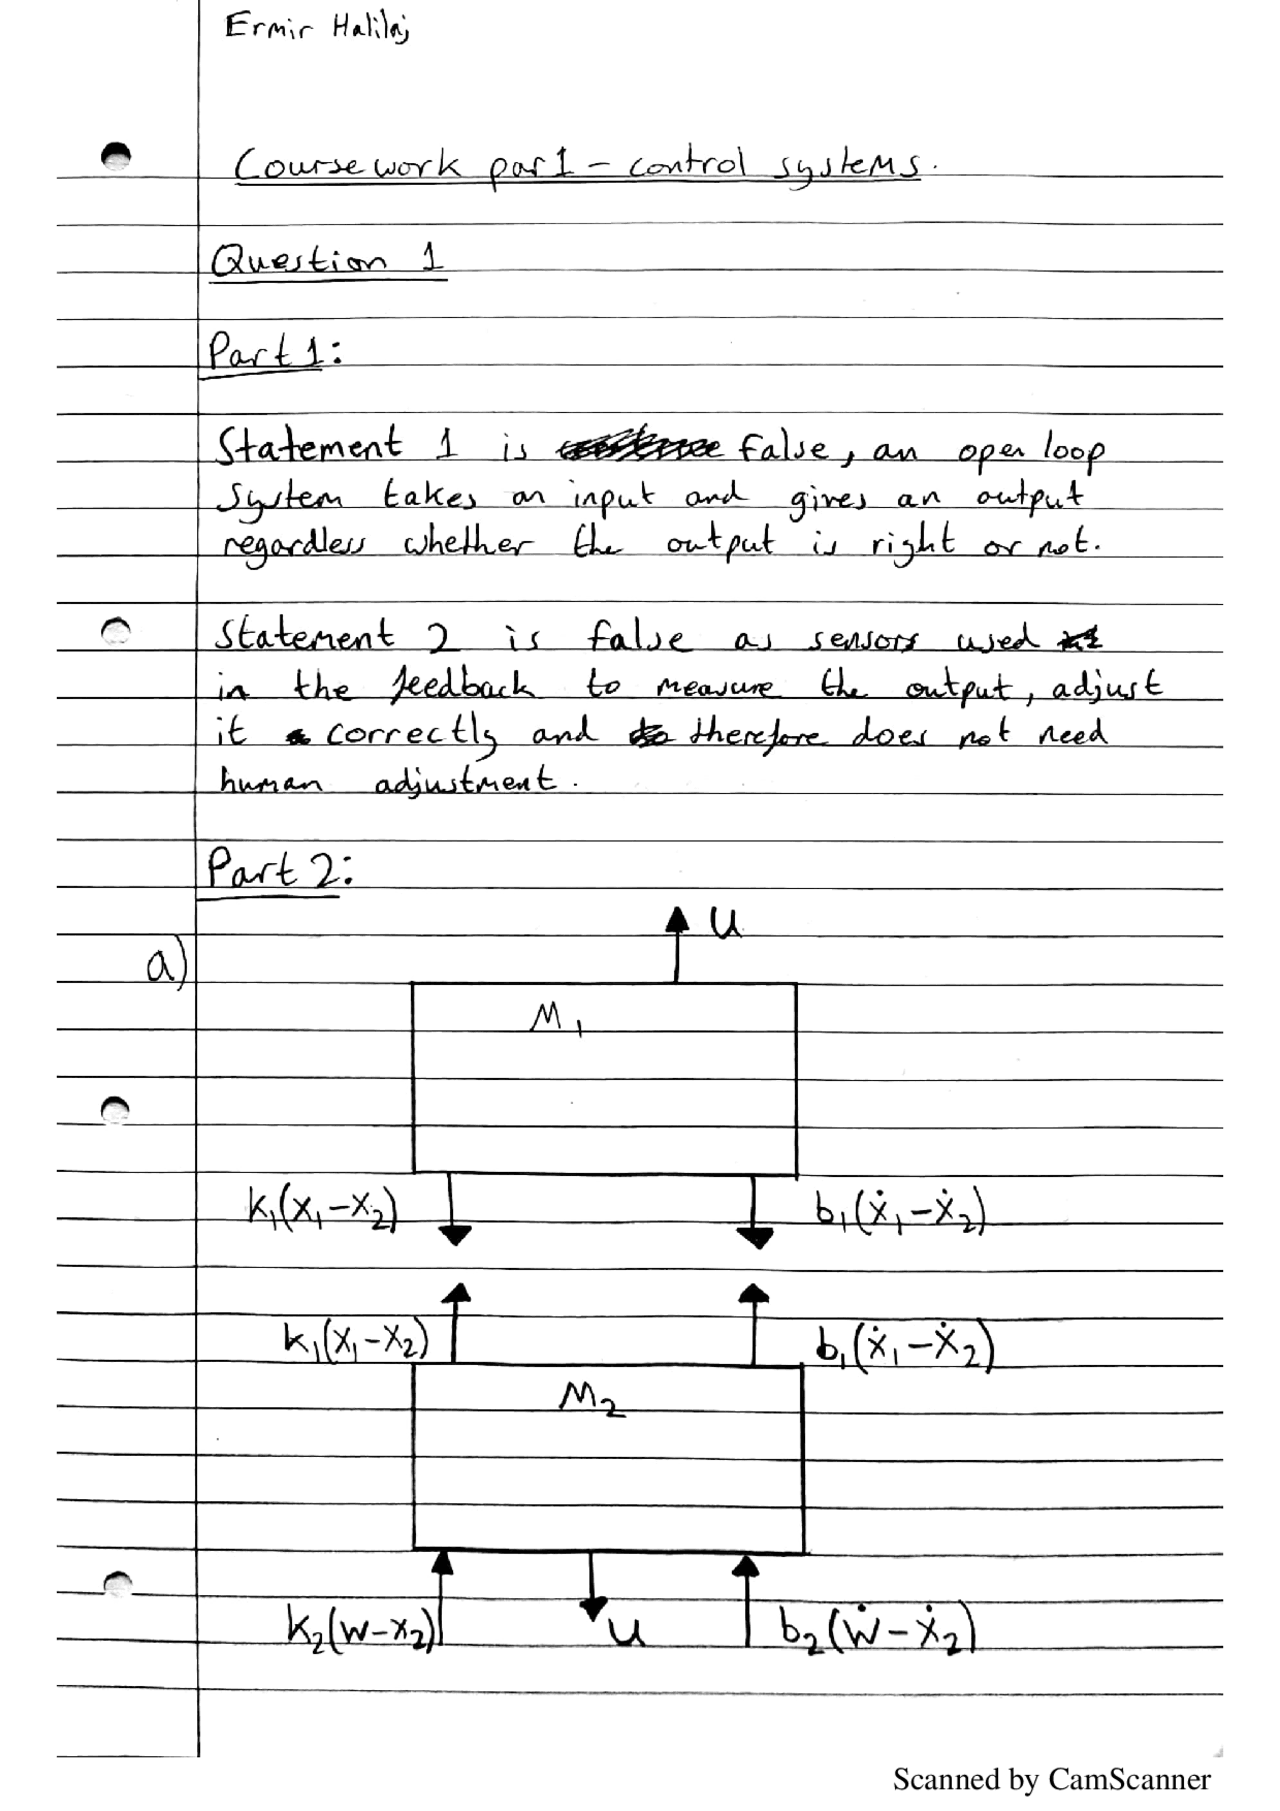 Ermir Halilaj
Coursework par1 - control systems.
Question 1
Part 1:
Statement 1 is false, an open loop
system takes an input and gives an output
regardless whether the output is right or not.
Statement 2 is false as sensors used
in the feedback to measure the output, adjust
it correctly and therefore does not need
human adjustment.
Part 2:
a)
u
M₁
k₁(x₁-x₂)
b₁(ẋ₁-ẋ₂)
k₁(x₁-x₂)
b₁(ẋ₁-ẋ₂)
M₂
k₂(w-x₂)
u
b₂(ẇ-ẋ₂)
Scanned by CamScanner